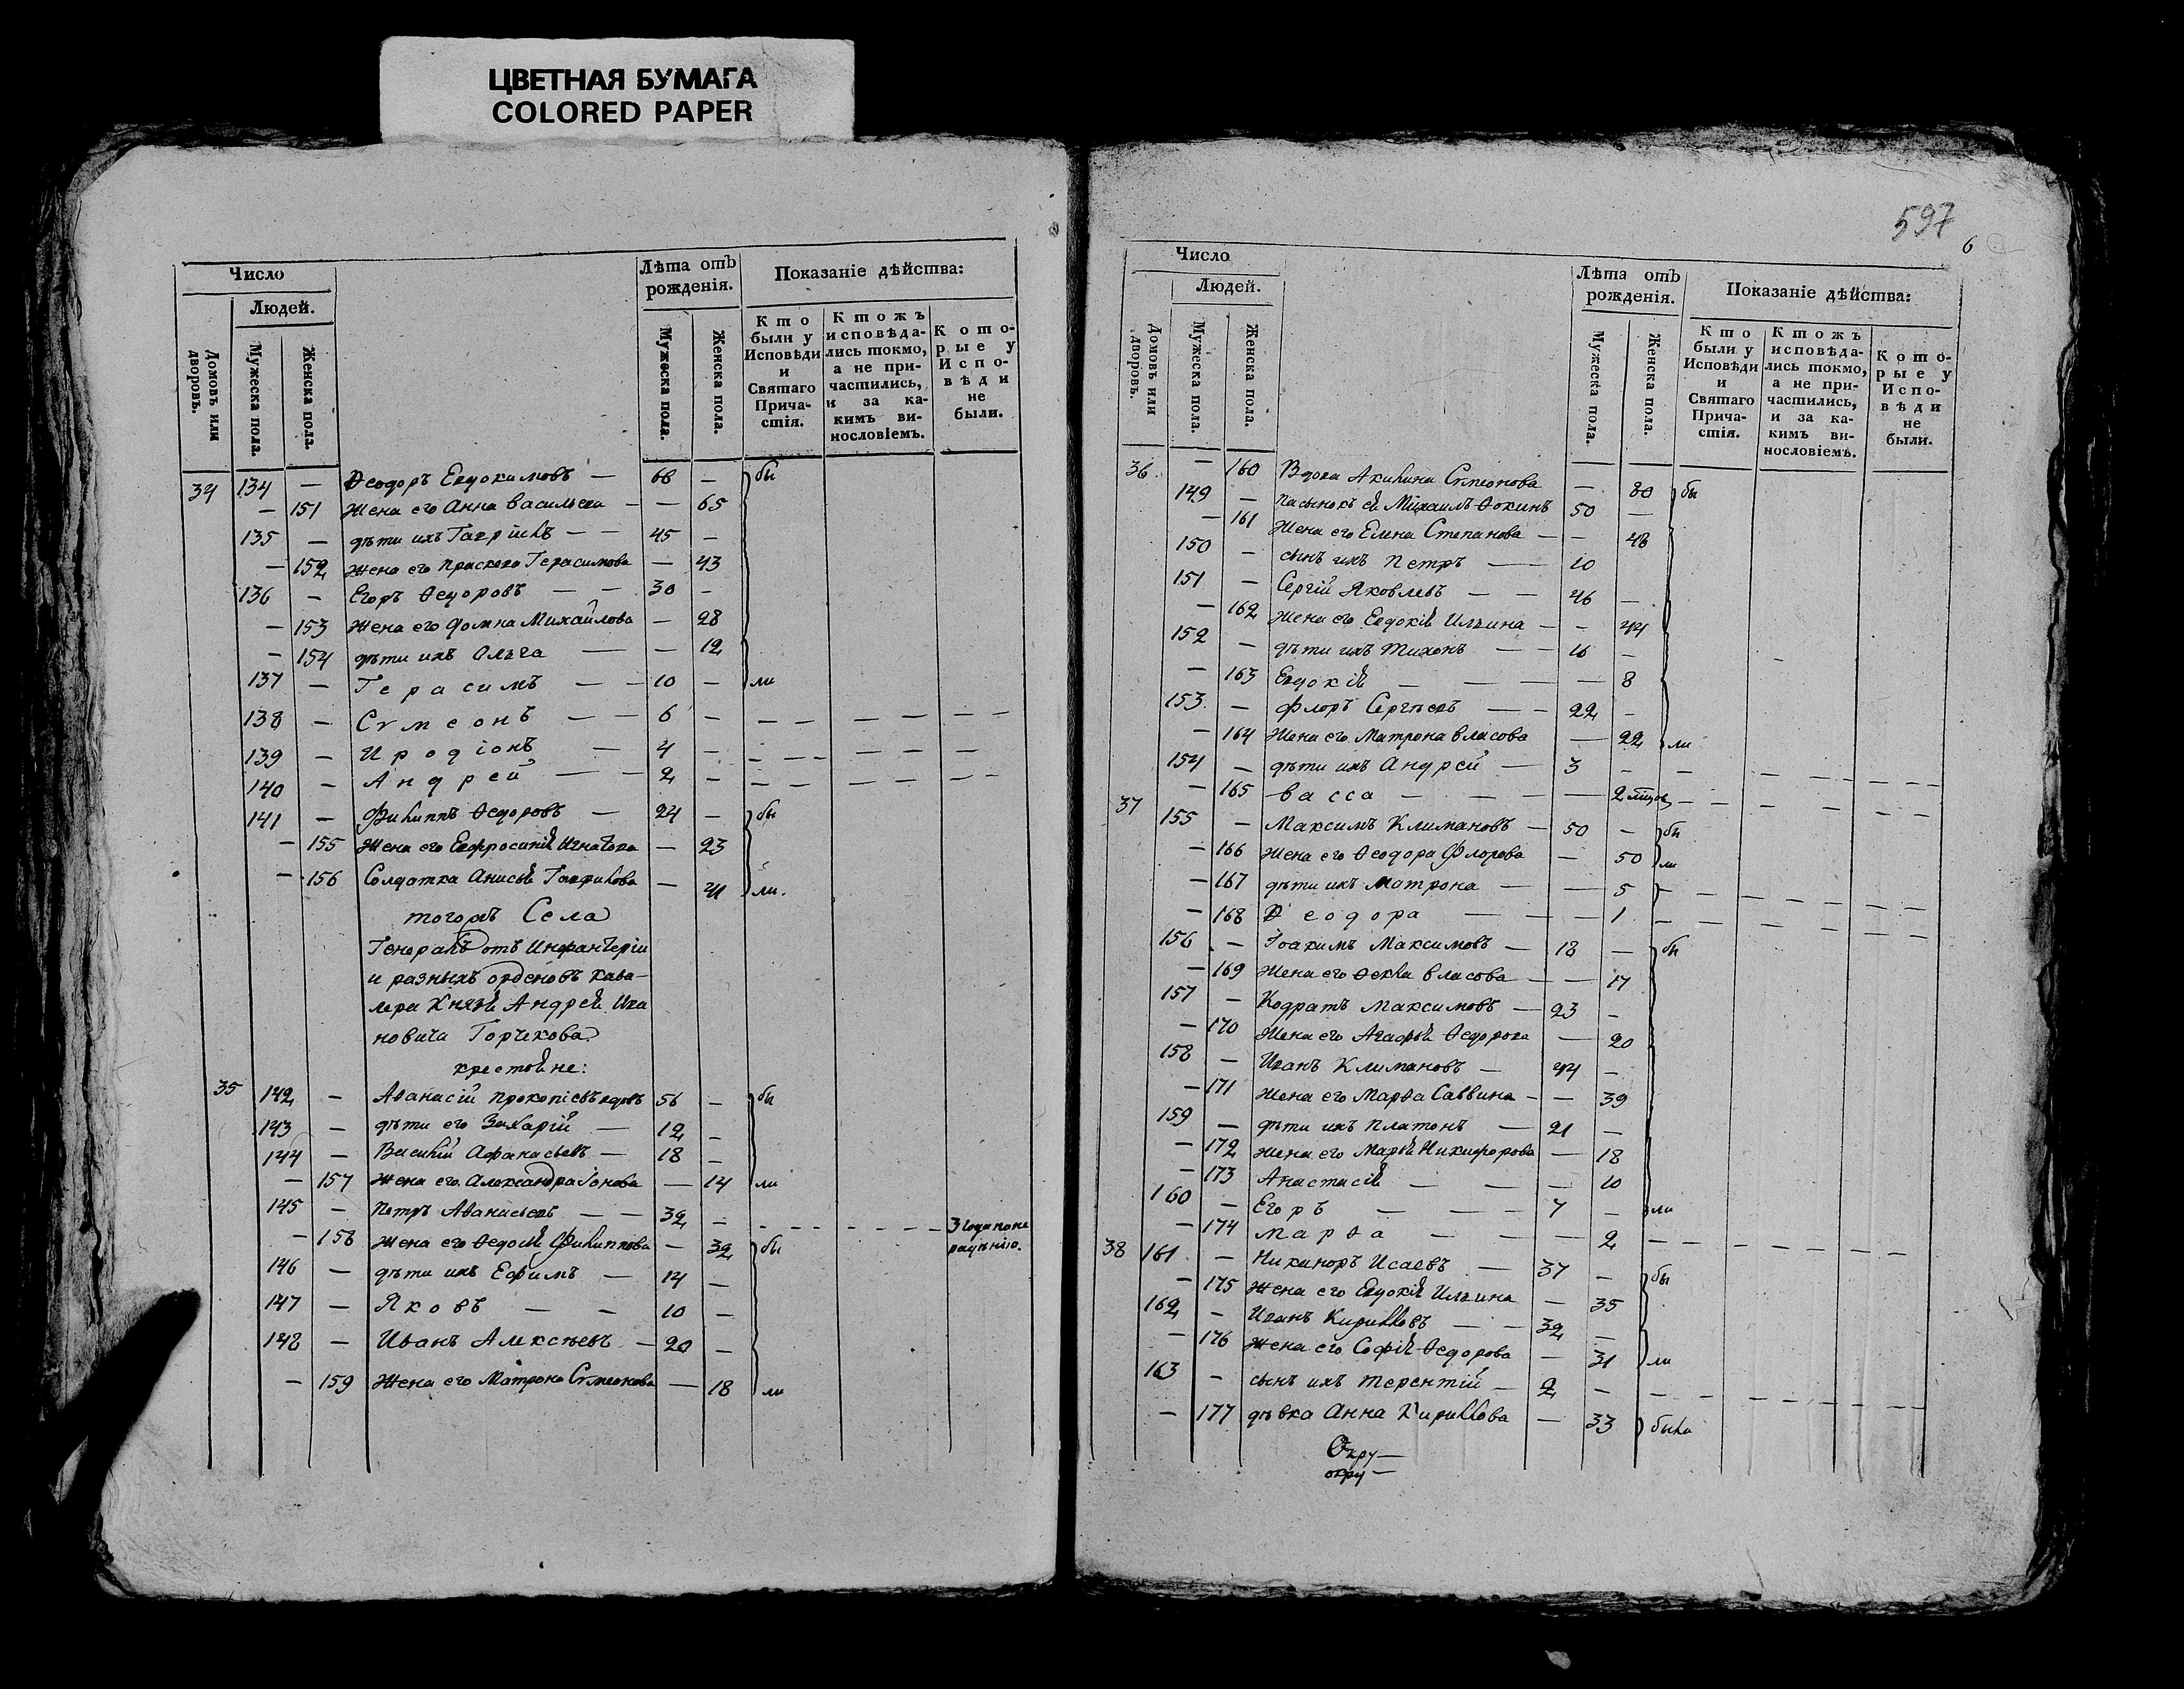 ЦВЕТНАЯ БУМАГА
COLORED PAPER
Число
Людей.
Домовъ или дворовъ.
Мужеска пола.
Женска пола.
Лѣта отъ рожденія.
Мужеска пола.
Женска пола.
Показаніе дѣйства:
Кто были у Исповѣди и Святаго Причастія.
Ктожъ исповѣдались токмо, а не причастились, и за какимъ винословіемъ.
Которые у Исповѣди не были.
34 134 — Ѳеодоръ Евдокимовъ — 68 — бы
— 151 Жена его Анна Васильева — — 65
135 — дѣти ихъ Гаврiилъ — — 45 —
— 152 Жена его Праскева Герасимова — 43
136 — Егоръ Ѳедоровъ — — 30 —
— 153 Жена его Домна Михайлова — 28
— 154 дѣти ихъ Ольга — — 12
137 — Герасимъ — — 10 — ли
138 — Сѵмеонъ — — 6 — — — — — — —
139 — Иродіонъ — 4 — — — — — — —
140 — Андрей — — 2 — — — — — — —
141 — Филиппъ Ѳедоровъ — 24 — бы
— 155 Жена его Евфросинія Игнатова — 23
— 156 Солдатка Анисья Гаврилова — 41 ли.
тогожъ Села
Генералъ отъ Инфантеріи
и разныхъ орденовъ кава-
лера Князя Андрея Ива
новича Горчкова
крестьяне:
35 142 — Аѳанасій Прокопіевъ вдовъ 56 — бы
143 — дѣти его Захарій — 12 —
144 — Василій Афанасьевъ — 18 —
— 157 Жена его Александра Іонова — 14 ли
145 — Петръ Аѳанасьевъ — — 32 — — — — — — — 3 года по не
радѣнію.
— 158 Жена его Ѳедосья Филиппова — 32 бы
146 — дѣти ихъ Ефимъ — 14 —
147 — Яковъ — — 10 —
148 — Иванъ Алексѣевъ — 20 —
— 159 Жена его Матрона Сѵмеонова — 18 ли
597
6
Число
Людей.
Домовъ или дворовъ.
Мужеска пола.
Женска пола.
Лѣта отъ рожденія.
Мужеска пола.
Женска пола.
Показаніе дѣйства:
Кто были у Исповѣди и Святаго Причастія.
Ктожъ исповѣдались токмо, а не причастились, и за какимъ винословіемъ.
Которые у Исповѣди не были.
36 — 160 Вдова Акилина Сѵмеонова — 80 бы
149 — пасынокъ ея Михаилъ Ѳокинъ 50 —
— 161 Жена его Елена Степанова — — 48
150 — сынъ ихъ Петръ — 10
151 — Сергій Яковлевъ — — 46 —
— 162 Жена его Евдокія Ильина — — 44
152 — дѣти ихъ Тихонъ — — 16 —
— 163 Евдокія — — — — 8
153 — Флоръ Сергѣевъ — — 22 —
— 164 Жена его Матрона Власова — 22 ли
154 — дѣти ихъ Андрей — 3 — — — — — — —
— 165 Васса — — — — 2 — — — — — —
37 155 — Максимъ Климановъ — 50 — бы
— 166 Жена его Ѳеодора Флорова — 50 ли
— 167 дѣти ихъ Матрона — — 5 — — — — — —
— 168 Ѳеодора — — — 1 — — — — — —
156 — Іоакимъ Максимовъ — 18 — бы
— 169 Жена его Ѳекла Власова — — 17
157 — Кодратъ Максимовъ — 23 —
— 170 Жена его Агафья Ѳедорова — 20
158 — Иванъ Климановъ — 44 —
— 171 Жена его Марѳа Саввина — — 39
159 — дѣти ихъ Платонъ — 21 —
— 172 Жена его Марья Никифорова — 18
— 173 Анастасія — — — 10
160 — Егоръ — — — 7 — ли
— 174 Марѳа — — — 2 — — — — — — —
38 161 — Никаноръ Исаевъ — 37 — бы
— 175 Жена его Евдокія Ильина — 35
162 — Иванъ Кирилловъ — — 32 —
— 176 Жена его Софія Ѳедорова — 31 ли
163 — сынъ ихъ Терентій — 2 — — — — — — —
— 177 дѣвка Анна Кириллова — 33 была
Окру—
окру—